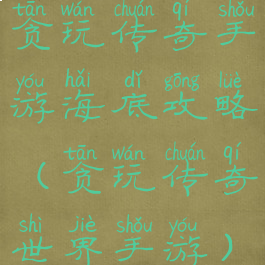 tān wán chuán qí shǒu
贪玩传奇手
yóu hǎi dǐ gōng lüè
游海底攻略
tān wán chuán qí
（贪玩传奇
shì jiè shǒu yóu
世界手游）